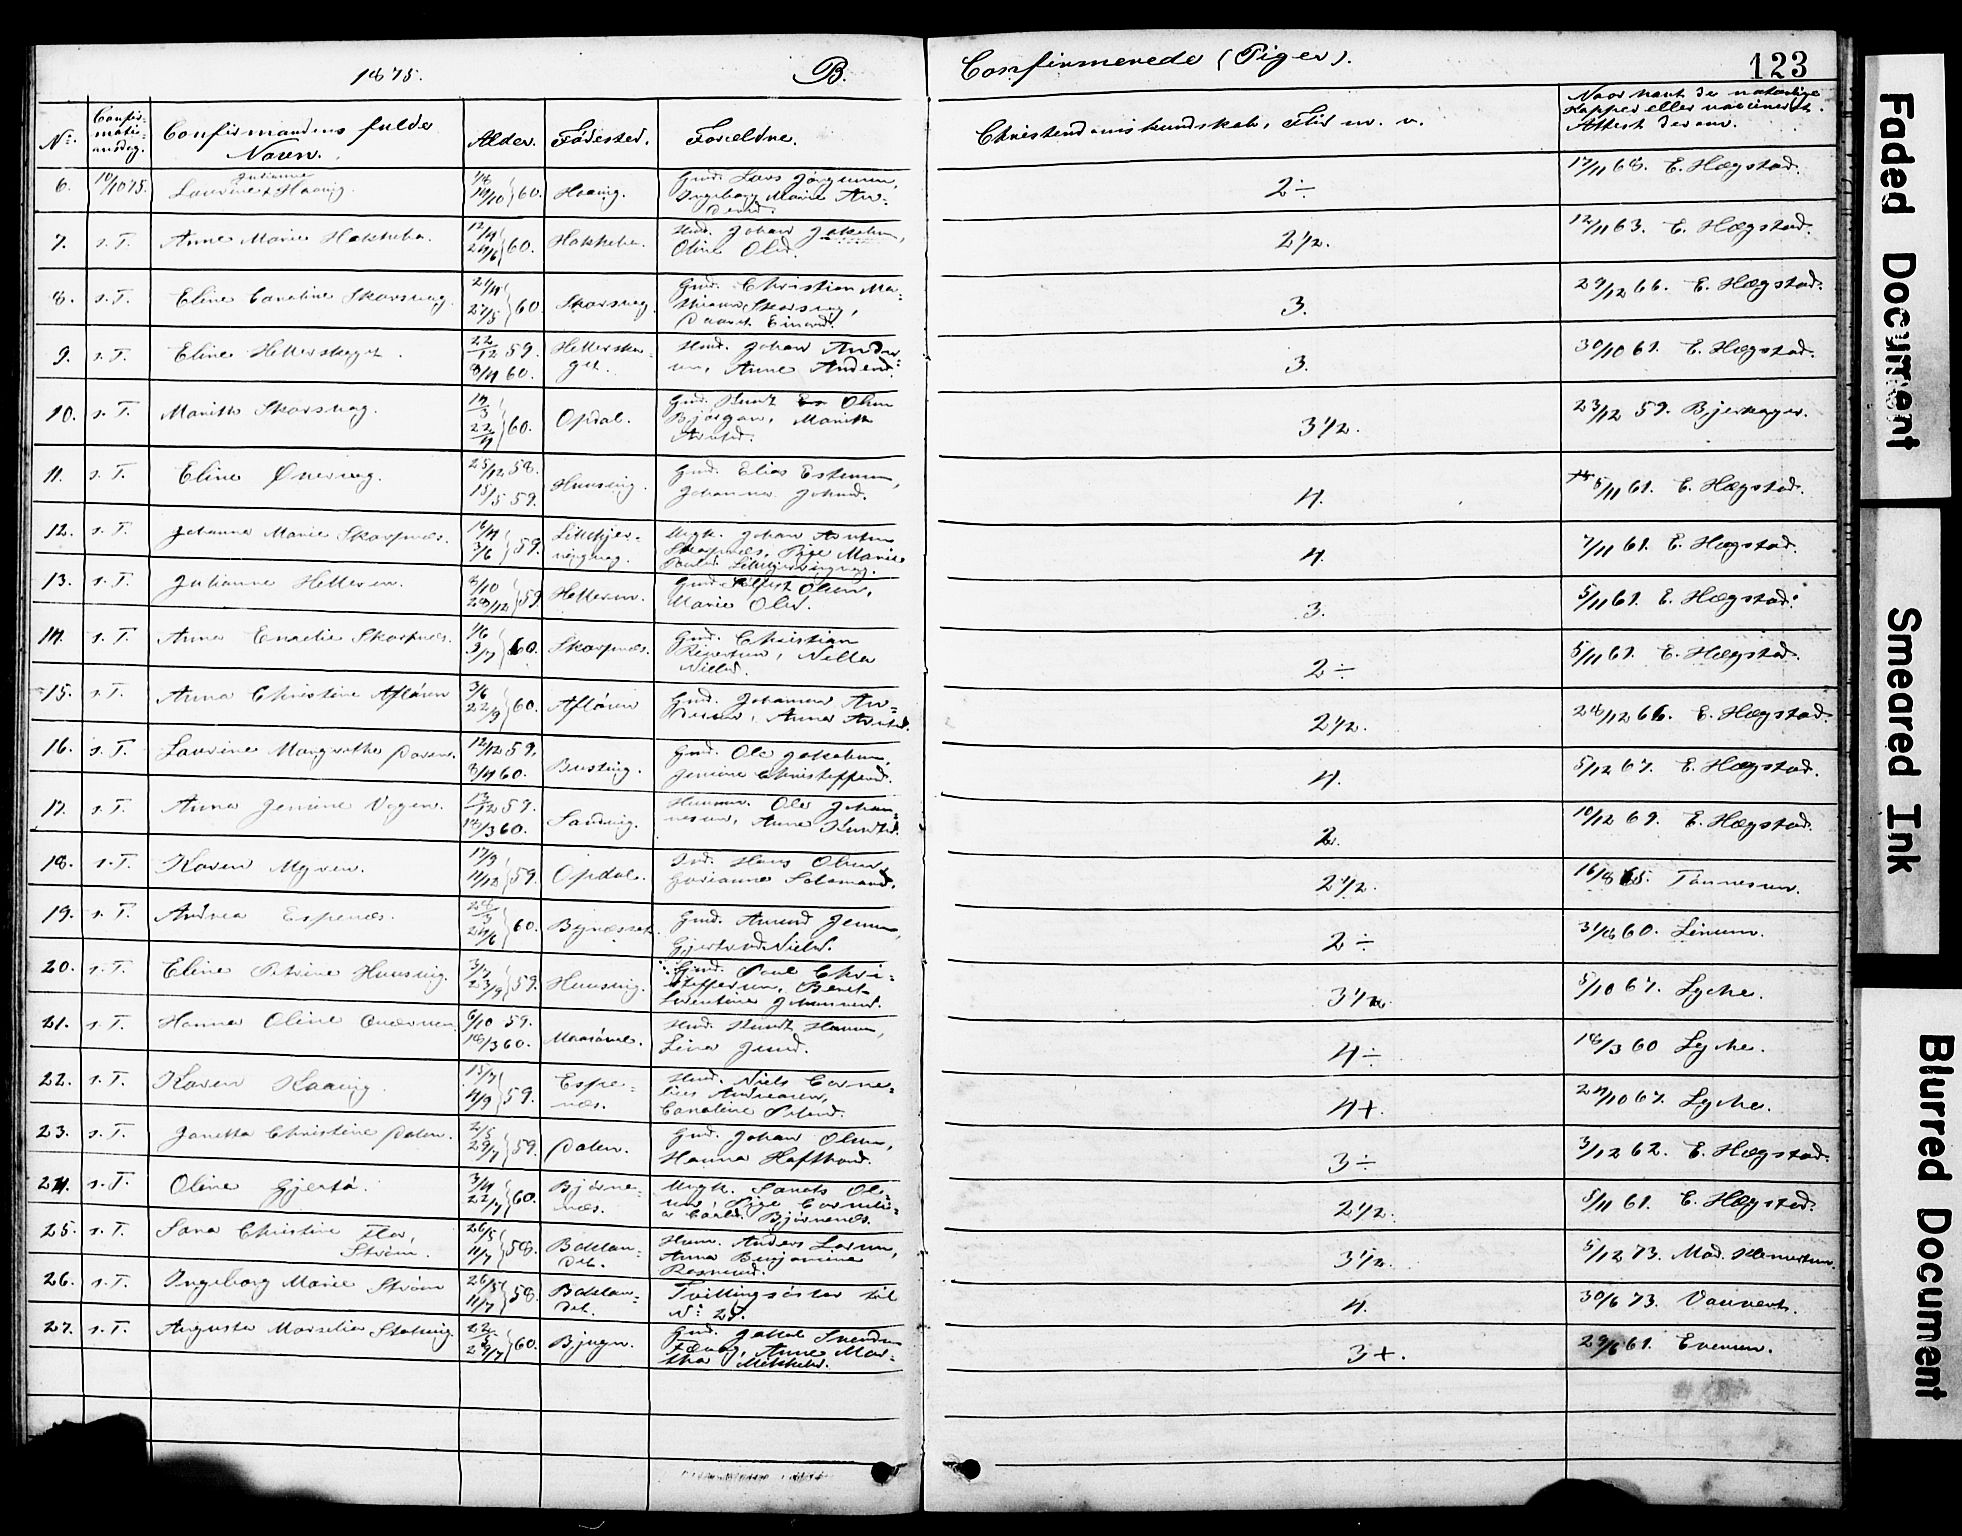 1875.
B.
Confirmerede (Piger).
123
No.
Confir-
matio-
nsdag.
Confirmandens fulde
Navn.
Alder.
Fødested.
Forældre.
Christendomskundskab, Flid m. v.
Naar havt de naturlige
Kopper eller vaccineret.
Attest derom.
6. 10/10 75. Laurine Julianne Haavig. 60. Haavig. Gmd. Lars Jørgensen,
Ingeborg Marie An-
dersd. 2÷ 17/11 68. E. Hægstad.
7. s. T. Anne Marie Hakkebo. 12/4 24/6 60. Hakkebo. Hmd. Johan Jakobsen,
Oline Olsd. 2½. 12/11 63. E. Hægstad.
8. s. T. Eline Caroline Skarsvag. 21/4 27/5 60. Skarsvag. Gmd. Christian Ma-
thiesen Skarsvag, 3. 29/12 66. E. Hægstad.
9. s. T. Eline Hetterskoget. 22/12 59. 8/4 60. Hettersko-
get. Hmd. Johan Ander-
sen, Anne Andersd. 3. 30/10 61. E. Hægstad.
10. s. T. Marith Skarsvag. 19/3 22/4 60. Opdal. Gmd. Knut Olsen
Bjørgan, Marith
Arntsd. 3½. 23/12 59. Bjerkager.
11. s. T. Eline 25/12 58. 15/5 59. Huusvig. Gmd. Elias Estensen,
Johanna Johnsd. 4. 5/11 61. E. Hægstad.
12. s. T. Johanna Marie Skarpnæs. 16/4 3/6 59. Ungk. Johan Arntsen
Skarpnæs, Pige Marie 4. 7/11 61. E. Hægstad.
13. s. T. Julianne Hetteren. 8/10 28/12 59. Hetteren. Gmd. Olsen,
Marie Olsd. 3. 5/11 61. E. Hægstad.
14. s. T. Anna Enselie Skarpnæs. 1/6 3/7 60. Skarpnæs. Gmd. Christian
Nilla
Nielsd. 2÷ 5/11 61. E. Hægstad.
15. s. T. Anna Christine Afløren 3/6 22/9 60. Afløren Gmd. Johannes An-
dersen, Anna Arntsd. 2½. 28/12 66. E. Hægstad.
16. s. T. Laurine Margrethe Dorene. 12/12 59. 8/4 60. Busting. Gmd. Ole Jakobsen,
Jensine Christoffersd. 4. 5/12 67. E. Hægstad.
17. s. T. Anna Jensine Vegen. 13/12 59. 12/3 60. Sandvig. Huusm. Ole Johan-
nesen, Anne Knutsd. 2. 10/12 69. E. Hægstad.
18. s. T. Karen Myren. 17/9 11/12 59. Opdal. Ind. Hans Olsen,
Marianne Salamonsd. 2½. 16/8 65. Tønnesen.
19. s. T. Andrea Espenæs. 28/3 24/6 60. Bynæsset. Gmd. Amund Jensen,
Gjertrud Nielsd. 2÷ 31/8 60. Linum.
20. s. T. Eline Petrine Huusvig. 3/7 23/9 59. Huusvig. Gmd. Paul Chri-
stoffersen, Berit
Lorentine Johannesd. 3½ 5/10 67. Lyche.
21. s. T. Hanna Oline Qværnen. 6/10 59. 18/3 60. Hmd. Knudt Hansen,
Lina Jensd. 4÷ 18/3 60 Lyche.
22. s. T. Karen Kaavig. 15/7 4/9 59. Espe-
næs. Hmd. Niels Corne-
lius Andreasen,
Caroline Petersd. 4+. 24/10 67. Lyche.
23. s. T. Janetta Christine Dalen. 2/5 29/7 59. Dalen. Gmd. Johan Olsen,
Hanna Hafthord. 3÷ 3/12 62. E. Hægstad.
24. s. T. Oline Gjertø. 3/4 22/7 60. Bjørne-
næs. Ungk. Ol-
sen, Pige Corneli-
a Carlsd. Bjørnenæs. 2½. 5/11 61. E. Hægstad.
25. s. T. Sara Christine Flor,
Strøm. 26/5 11/7 58. Baklan-
det. Huusm. Anders Larsen,
Anna Benjamine
Rasmusd. 3½. 5/12 73. Mad. Klemetsen.
26. s. T. Ingeborg Marie Strøm 26/5 11/7 58. Baklan-
det. Tvillingsøster til
No 25. 4. 30/6 73. Vauvert.
27. s. T. Augusta Marselie Stokvig. 22/5 29/7 60. Bjugn. Gmd. Jakob Svendsen
Fævaag, Anne Mar-
tha Mikkelsd. 3+. 29/6 61. Evensen.
Faded Document
Smeared Ink
Blurred Document